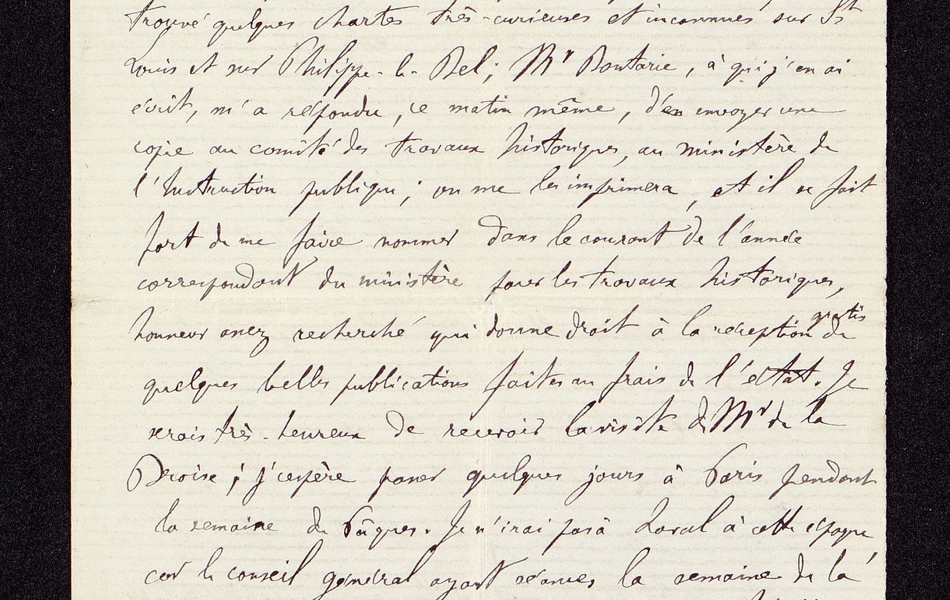 trouvé quelques chartes très-curieuses et inconnues sur St
Louis et sur Philippe-le-Bel; Mr Boutaric, à qui j'en ai
écrit, m'a répondu, ce matin même, d'en envoyer une
copie au comité des travaux historiques, au ministère de
l'Instruction publique; on me les imprimera, et il se fait
fort de me faire nommer dans le courant de l'année
correspondant du ministère pour les travaux historiques,
honneur assez recherché qui donne droit à la réception gratis de
quelques belles publications faites au frais de l'état. Je
serais très-heureux de recevoir la visite de Mr de la
; j'espère passer quelques jours à Paris pendant
la semaine de Pâques. Je n'irai pas à Laval à cette époque
car le conseil général ayant séances la semaine de la